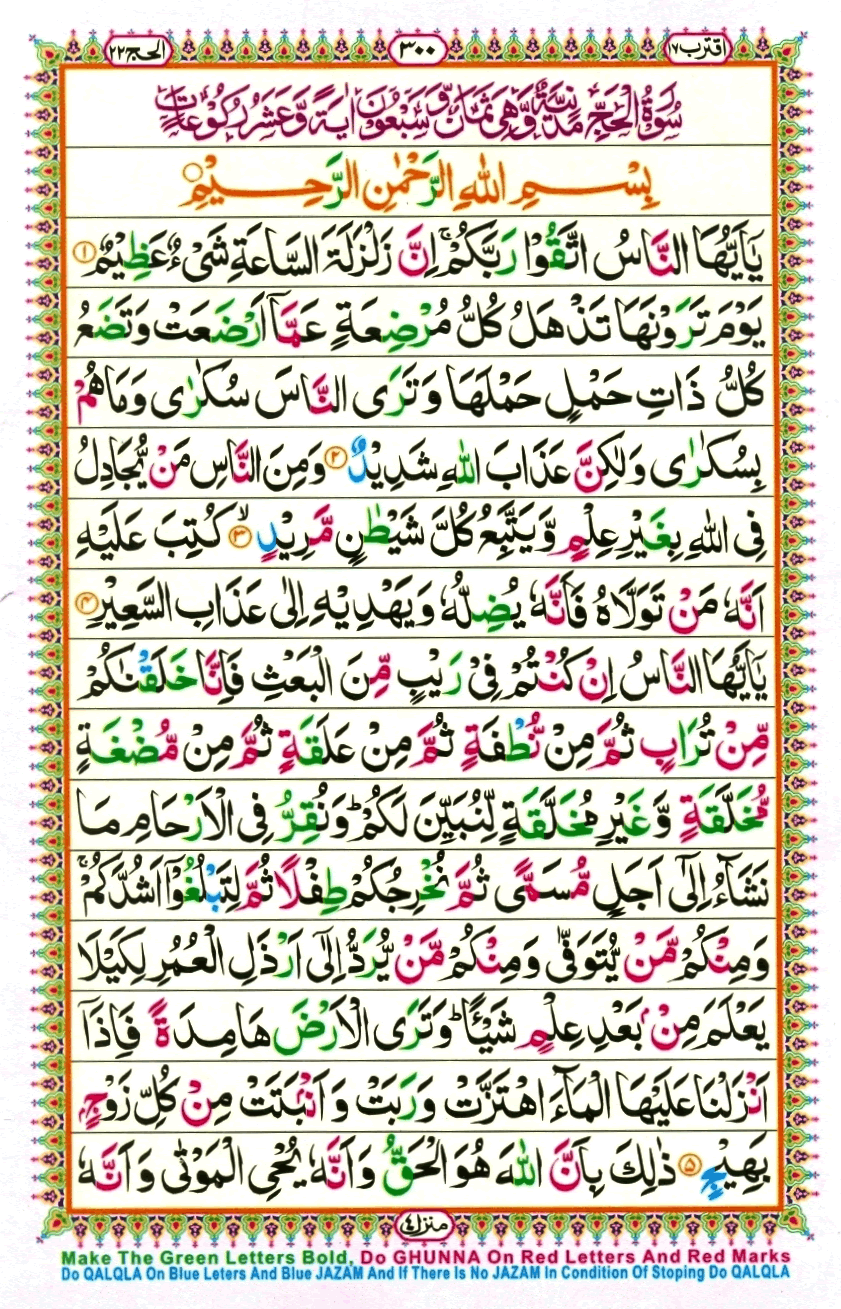 اقترب ١٧
٣٠٠
الحج ٢٢
سُوْرَةُ الْحَجِّ مَدَنِيَّةٌ وَّهِىَ ثَمَانٌ وَّسَبْعُوْنَ اٰيَةً وَّعَشَرُ رُكُوْعَاتٍ
بِسْمِ اللّٰهِ الرَّحْمٰنِ الرَّحِيْمِ
يٰۤاَيُّهَا النَّاسُ اتَّقُوْا رَبَّكُمْ ۚ اِنَّ زَلْزَلَةَ السَّاعَةِ شَىْءٌ عَظِيْمٌ ۝١
يَوْمَ تَرَوْنَهَا تَذْهَلُ كُلُّ مُرْضِعَةٍ عَمَّاۤ اَرْضَعَتْ وَتَضَعُ
كُلُّ ذَاتِ حَمْلٍ حَمْلَهَا وَتَرَى النَّاسَ سُكٰرٰى وَمَا هُمْ
بِسُكٰرٰى وَلٰكِنَّ عَذَابَ اللّٰهِ شَدِيْدٌ ۝٢ وَمِنَ النَّاسِ مَنْ يُّجَادِلُ
فِى اللّٰهِ بِغَيْرِ عِلْمٍ وَّيَتَّبِعُ كُلَّ شَيْطٰنٍ مَّرِيْدٍ ۙ‏۝٣ كُتِبَ عَلَيْهِ
اَنَّهٗ مَنْ تَوَلَّاهُ فَاَنَّهٗ يُضِلُّهٗ وَيَهْدِيْهِ اِلٰى عَذَابِ السَّعِيْرِ ۝٤
يٰۤاَيُّهَا النَّاسُ اِنْ كُنْتُمْ فِىْ رَيْبٍ مِّنَ الْبَعْثِ فَاِنَّا خَلَقْنٰكُمْ
مِّنْ تُرَابٍ ثُمَّ مِنْ نُّطْفَةٍ ثُمَّ مِنْ عَلَقَةٍ ثُمَّ مِنْ مُّضْغَةٍ
مُّخَلَّقَةٍ وَّغَيْرِ مُخَلَّقَةٍ لِّنُبَيِّنَ لَكُمْ ؕ وَنُقِرُّ فِى الْاَرْحَامِ مَا
نَشَآءُ اِلٰٓى اَجَلٍ مُّسَمًّى ثُمَّ نُخْرِجُكُمْ طِفْلًا ثُمَّ لِتَبْلُغُوْۤا اَشُدَّكُمْ ۚ
وَمِنْكُمْ مَّنْ يُّتَوَفّٰى وَمِنْكُمْ مَّنْ يُّرَدُّ اِلٰٓى اَرْذَلِ الْعُمُرِ لِكَيْلَا
يَعْلَمَ مِنْۢ بَعْدِ عِلْمٍ شَيْـًٔا ؕ وَتَرَى الْاَرْضَ هَامِدَةً فَاِذَاۤ
اَنْزَلْنَا عَلَيْهَا الْمَآءَ اهْتَزَّتْ وَرَبَتْ وَاَنْۢبَتَتْ مِنْ كُلِّ زَوْجٍۢ
بَهِيْجٍ ۝٥ ذٰلِكَ بِاَنَّ اللّٰهَ هُوَ الْحَقُّ وَاَنَّهٗ يُحْىِ الْمَوْتٰى وَاَنَّهٗ
منزل ٤
Make The Green Letters Bold, Do GHUNNA On Red Letters And Red Marks
Do QALQLA On Blue Leters And Blue JAZAM And If There Is No JAZAM In Condition Of Stoping Do QALQLA